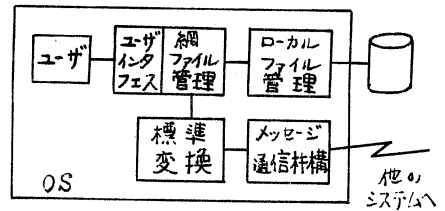 ユーザ
ユーザ
インタ
フェス
網
ファイル
管理
ローカル
ファイル
管理
標準
変換
メッセージ
通信機構
OS
他の
システムへ